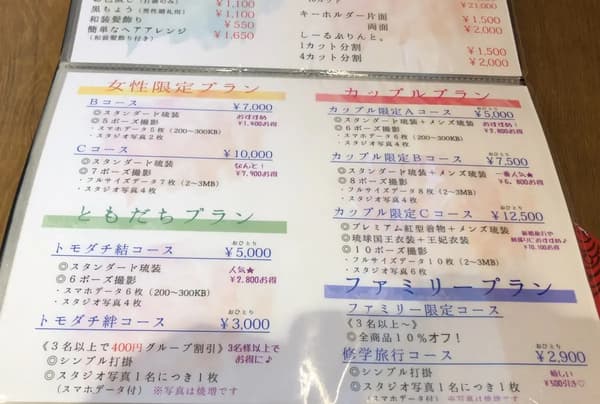 ¥1,100
黒もょう（男性婚礼用）
¥1,100
和装髪飾り
¥550
簡単なヘアアレンジ
¥1,650
（和装髪飾り付き）
¥21,000
キーホルダー片面
¥1,500
両面
¥2,000
しーるぷりんと。
1カット分割
¥1,500
4カット分割
¥2,000
女性限定プラン
Bコース
¥7,000
◎スタンダード琉装
おすすめ！
◎5ポーズ撮影
¥1,400お得
・スマホデータ5枚（200~300KB）
・スタジオ写真2枚
Cコース
¥10,000
◎スタンダード琉装
なんと！
◎7ポーズ撮影
¥7,900お得
・フルサイズデータ7枚（2~3MB）
・スタジオ写真4枚
ともだちプラン
おひとり
トモダチ結コース
¥5,000
◎スタンダード琉装
人気★
◎6ポーズ撮影
¥2,800お得
・スマホデータ6枚（200~300KB）
・スタジオ写真4枚
おひとり
トモダチ絆コース
¥3,000
《3名以上で400円グループ割引》
3名様以上で
お得に♪
◎シンプル打掛
◎スタジオ写真1名につき1枚
（スマホデータ付）※写真は焼増です
カップルプラン
おひとり
カップル限定Aコース
¥5,000
◎スタンダード琉装+メンズ琉装
おすすめ！
◎6ポーズ撮影
¥3,800お得
・スマホデータ6枚（200~300KB）
・スタジオ写真4枚
おひとり
カップル限定Bコース
¥7,500
◎スタンダード琉装+メンズ琉装
一番人気★
◎8ポーズ撮影
¥6,800お得
・フルサイズデータ8枚（2~3MB）
・スタジオ写真4枚
おひとり
カップル限定Cコース
¥12,500
◎プレミアム紅型着物+メンズ琉装
◎琉球国王衣装+王妃衣装
◎10ポーズ撮影
¥10,100お得
・フルサイズデータ10枚（2~3MB）
・スタジオ写真6枚
ファミリープラン
ファミリー限定コース
《3名以上~》
◎全商品10%オフ！
おひとり
修学旅行コース
¥2,900
◎シンプル打掛
嬉しい
◎スタジオ写真1名につき1枚
¥500引き♡
（スマホデータ付）※写真は焼増です